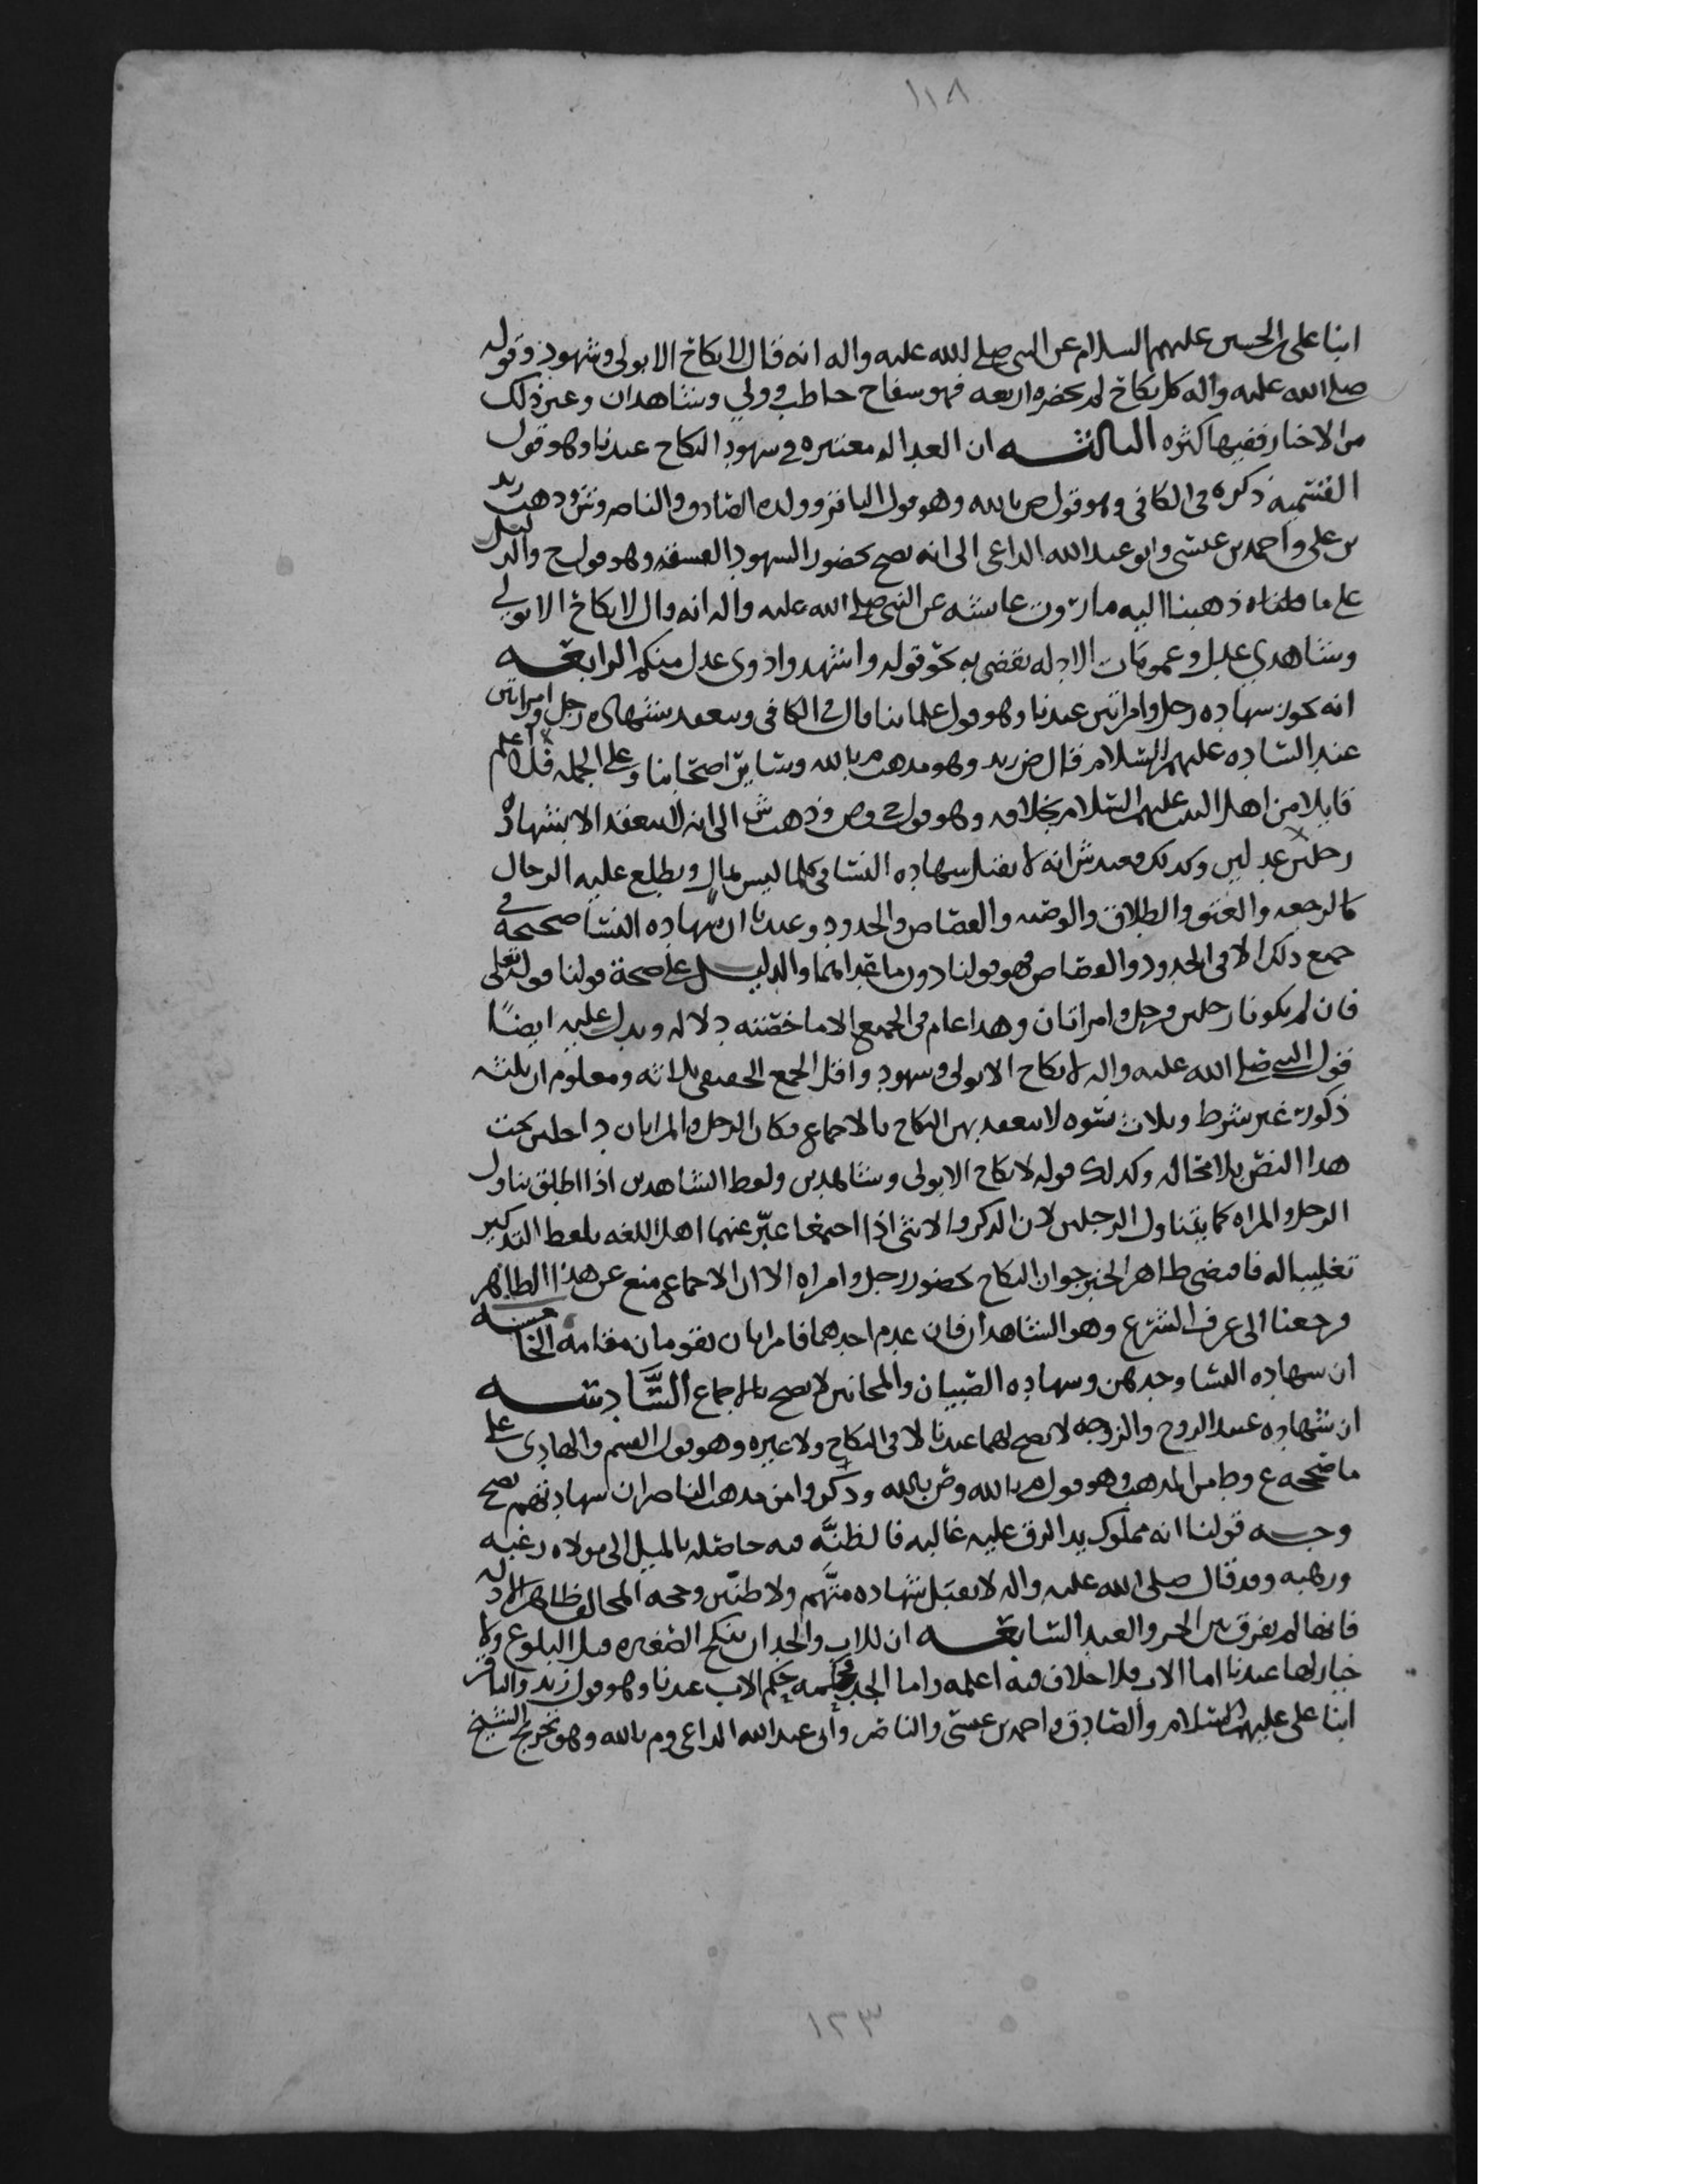 ١١٨
ابنا على بن الحسين عليهم السلام عن النبي صلى الله عليه واله انه قال لا نكاح الا بولي وشهود وقوله
صلى الله عليه واله كل نكاح لم يحضره اربعه فهو سفاح خاطب وولي وشاهدان وغير ذلك
من الاخبار ففيها كثره الثالثــه ان العداله معتبره في شهود النكاح عندنا وهو قول
القسميه ذكره في الكافي وهو قول ص بالله وهو قول الباقر وولده الصادق والناصر وش وذهب زيد
بن علي واحمد بن عيسى وابو عبد الله الداعي الى انه يصح بحضور الشهود الفسقه وهو قول ح والدليل
على ما ذهبنا اليه ما روت عائشه عن النبي صلى الله عليه واله انه قال لا نكاح الا بولي
وشاهدي عدل وعمومات الادله تقضي به نحو قوله واشهدوا ذوي عدل منكم الرابعــه
انه يجوز شهاده رجل وامراتين عندنا وهو قول علمائنا قال في الكافي وينعقد بشهاده رجل وامراتين
عند الساده عليهم السلام قال ض زيد وهو مذهب م بالله وسائر اصحابنا وعلى الجمله فلا اعلم
قايلا من اهل البيت عليهم السلام بخلافه وهو قول ح وص وذهب ش الى انه لا ينعقد الا بشهاده
رجلين عدلين وكذلك فعند ش انه لا يقبل شهاده النسا في كلما ليس بمال ويطلع عليه الرجال
كالرجعه والعتق والطلاق والوصيه والقصاص والحدود وعندنا ان شهاده النسا صحيحة في
جميع ذلك الا في الحدود والقصاص فهو قولنا دون ما عداهما والدليــل على صحة قولنا قوله تعالى
فان لم يكونا رجلين فرجل وامراتان وهذا عام في الجميع الا ما خصته دلاله ويدل عليه ايضًا
قول النبي صلى الله عليه واله لا نكاح الا بولي وشهود واقل الجمع الحقيقي ثلاثه ومعلوم ان ثلثه
ذكور غير شرط وثلاث نسوه لا ينعقد بهن النكاح بالاجماع فكان الرجل والمراتان داخلين تحت
هذا النص بلا محاله وكذلك قوله لا نكاح الا بولي وشاهدين ولفظ الشاهدين اذا اطلق يتناول
الرجل والمراه كما يتناول الرجلين لان الذكر والانثى اذا اجتمعا عبّر عنهما اهل اللغه بلفظ التذكير
تغليبا له فاقتضى ظاهر الخبر جواز النكاح بحضور رجل وامراه الا ان الاجماع منع عن هذا الظاهر
فرجعنا الى عرف الشرع وهو الشاهدان فان عدم احدهما فامراتان تقومان مقامه الخامســه
ان شهاده النسا وحدهن وشهاده الصبيان والمجانين لا يصح بالاجماع السَّادســه
ان شهاده عبد الزوج والزوجه لا يصح لهما عندنا لا في النكاح ولا غيره وهو قول القسم والهادي على
ما صححه ع وط من المذهب وهو قول م بالله وص بالله وذكروا من مذهب الناصر ان شهادتهم تصح
وجــه قولنا انه مملوك يد الرق عليه غالبه فالظنَّه فيه حاصله بالميل الى مولاه رغبه
ورهبه وقد قال صلى الله عليه واله لا يقبل شهاده متَّهم ولا ظنّين وحجه المخالف ظاهر الادله
فانها لم يفرق بين الحر والعبد السابعــه ان للاب والجد ان ينكح الصغيره قبل البلوغ ولا
خيار لها عندنا اما الاب فلا خلاف فيه اعلمه واما الجد فحكمه حكم الاب عندنا وهو قول زيد والباقر
ابنا على عليهما السلام والصادق واحمد بن عيسى والناصر وأبي عبد الله الداعي وم بالله وهو تخريج الشيخ
١٢٣